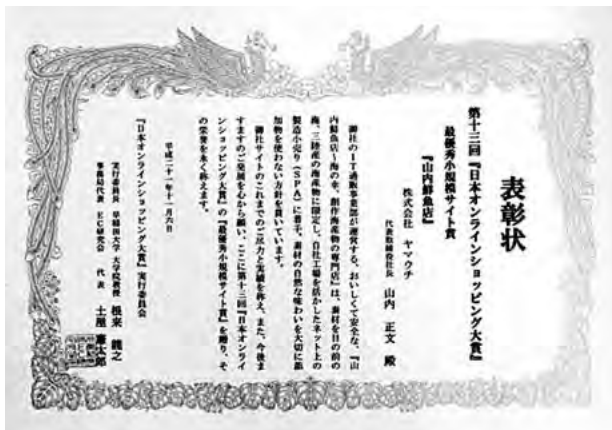 表彰状
第十三回『日本オンラインショッピング大賞』
最優秀小規模サイト賞
『山内鮮魚店』
株式会社 ヤマウチ
代表取締役社長 山内 正文 殿
御社のIT通販事業部が運営する、おいしくて安全な、『山
内鮮魚店~海の幸、創作海産物の専門店』は、素材を目の前の
海、三陸産の海産物に限定し、自社工場を活かしたネット上の
製造小売り(SPA)に着手。素材の自然な味わいを大切に添
加物を使わない方針を貫いています。
御社サイトのこれまでのご尽力と実績を称え、また、今後ま
すますのご発展を心から願い、ここに第十三回『日本オンライ
ンショッピング大賞』の『最優秀小規模サイト賞』を贈り、そ
の栄誉を永く称えます。
平成二十一年十一月六日
『日本オンラインショッピング大賞』実行委員会
実行委員長 早稲田大学 大学院教授 根来 龍之
事務局代表 EC研究会 代表 土屋 憲太郎